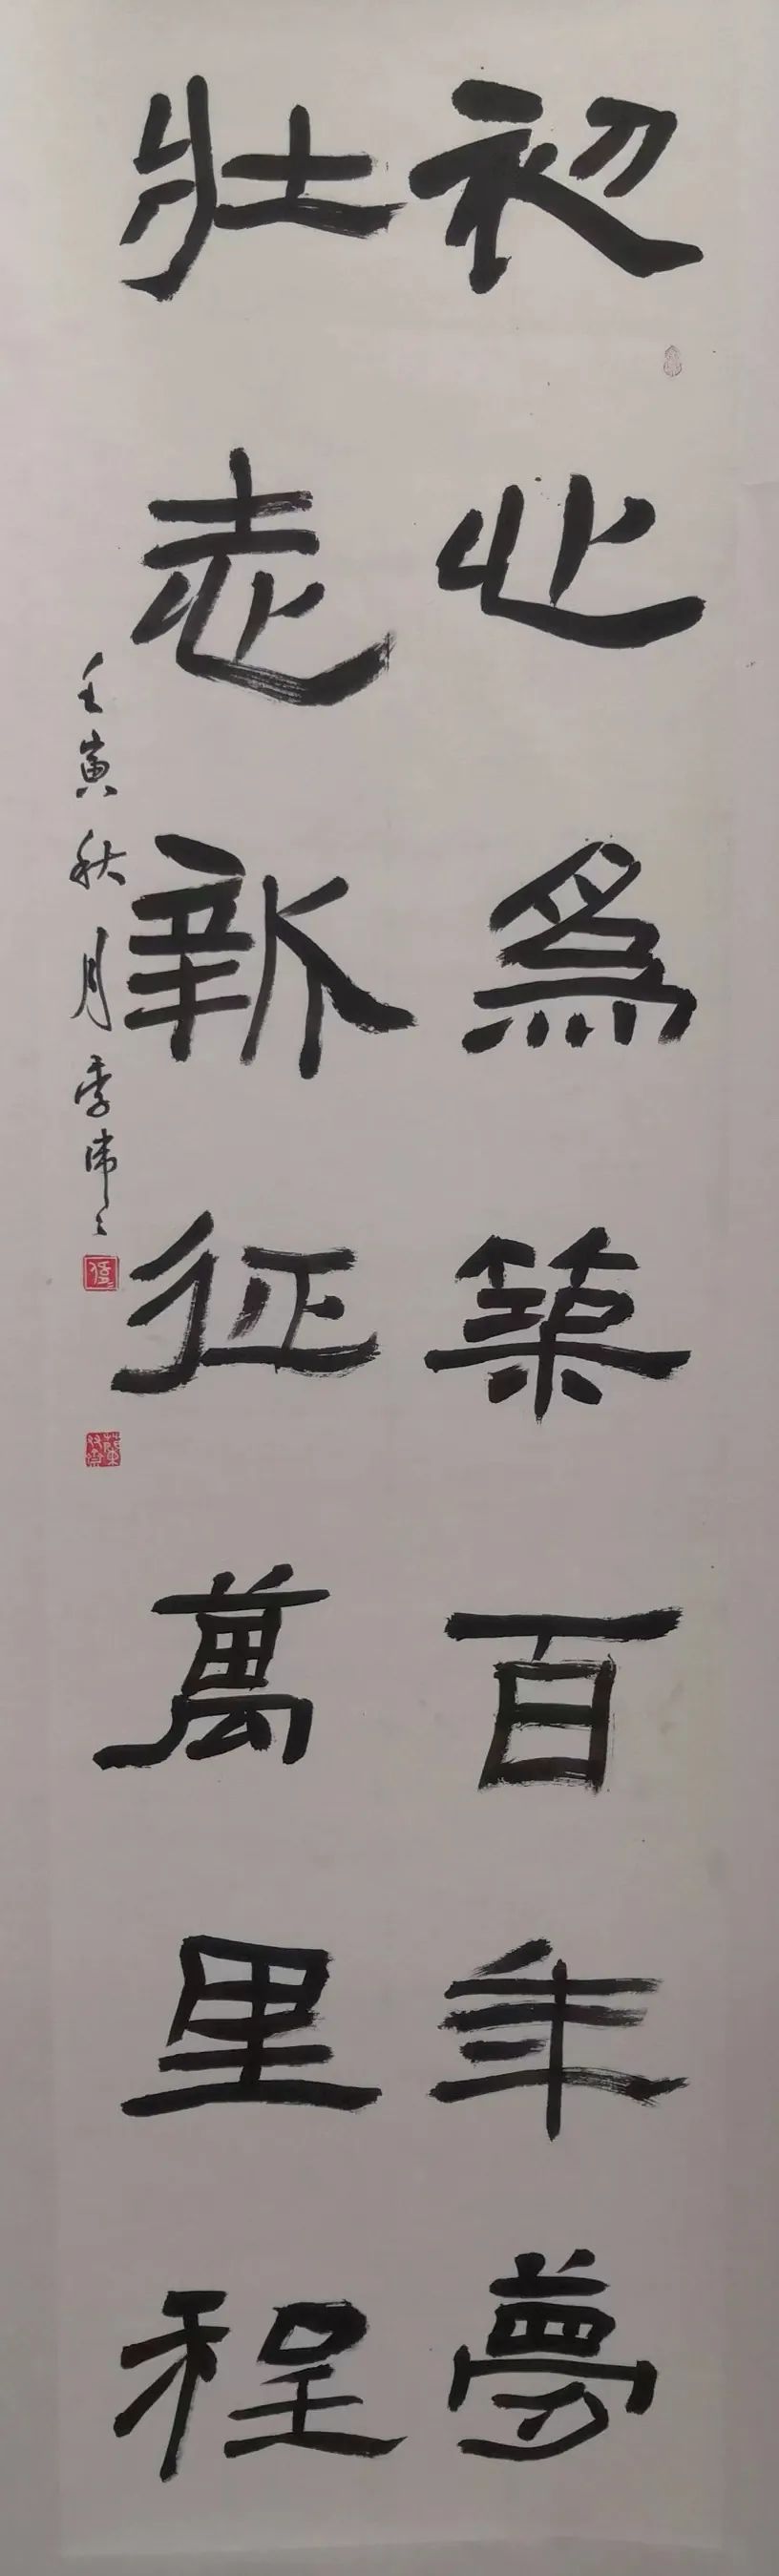 初心為築百年夢
壯志新征萬里程
壬寅秋月季偉